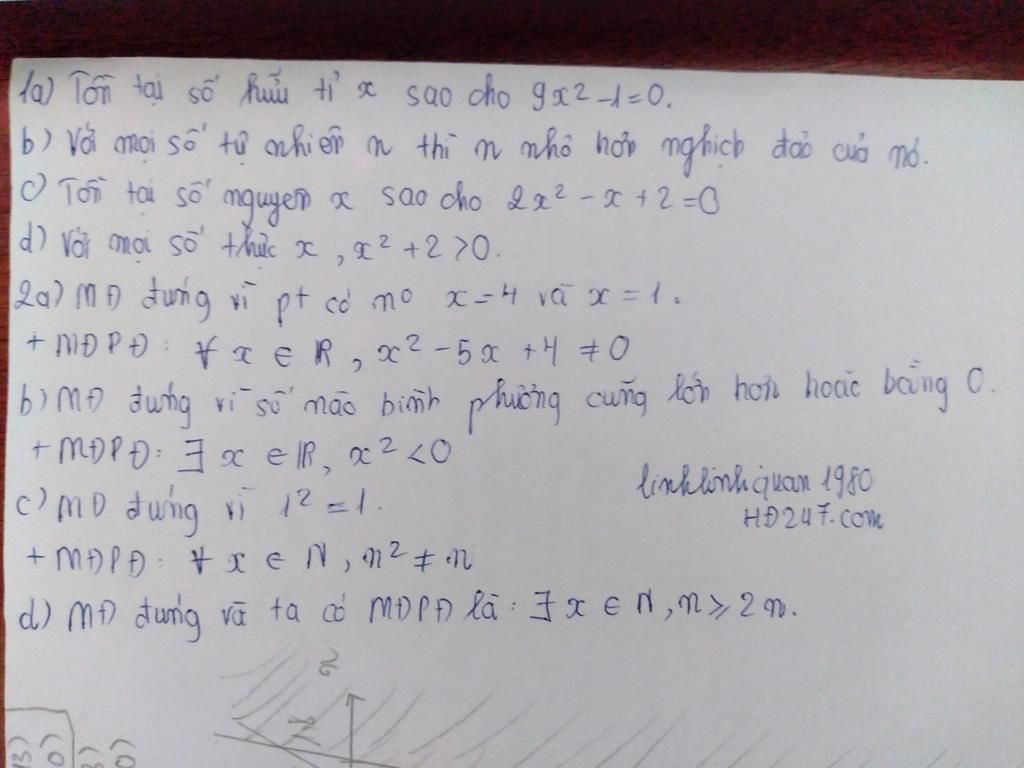 1a) Tồn tại số hữu tỉ x sao cho 9x² - 1 = 0.
b) Với mọi số tự nhiên n thì n nhỏ hơn nghịch đảo của nó.
c) Tồn tại số nguyên x sao cho 2x² - x + 2 = 0
d) Với mọi số thực x, x² + 2 > 0.
2a) MĐ đúng vì pt có nº x = 4 và x = 1.
+ MĐPĐ: ∀ x ∈ R, x² - 5x + 4 ≠ 0
b) MĐ đúng vì số nào bình phương cũng lớn hơn hoặc bằng 0.
+ MĐPĐ: ∃ x ∈ R, x² < 0
linhlinhquan 1980
c) MĐ đúng vì 1² = 1.
HĐ247.com
+ MĐPĐ: ∀ x ∈ N, n² ≠ n
d) MĐ đúng và ta có MĐPĐ là: ∃ x ∈ N, n ≥ 2n.